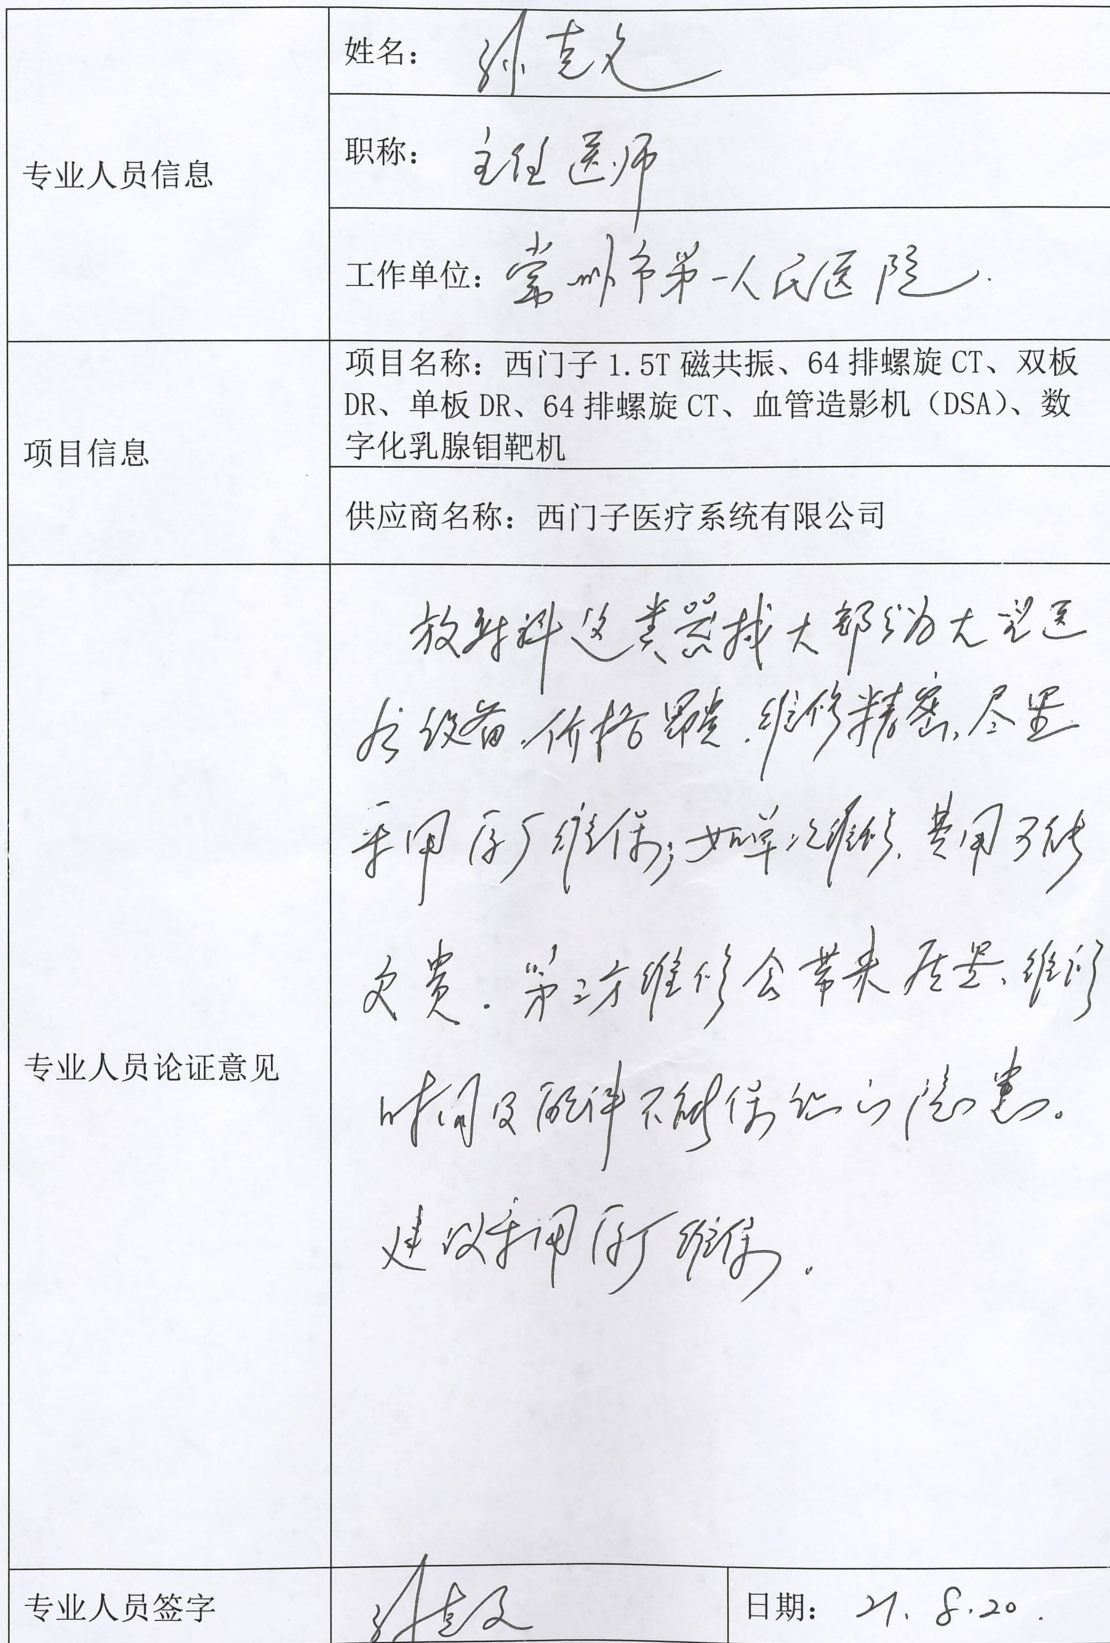 姓名：孙克文
专业人员信息
职称：主任医师
工作单位：常州市第一人民医院.
项目信息
项目名称：西门子 1.5T 磁共振、64 排螺旋 CT、双板
DR、单板 DR、64 排螺旋 CT、血管造影机（DSA）、数
字化乳腺钼靶机
供应商名称：西门子医疗系统有限公司
专业人员论证意见
放射科这类器械大部分为大型医
疗设备，价格昂贵，维修精密，尽量
采用原厂维保；如单次维修，费用可能
更贵．第三方维修会带来质量、维修
时间及配件不能保证的隐患。
建议采用原厂维保．
专业人员签字
孙克文
日期：21.8.20.